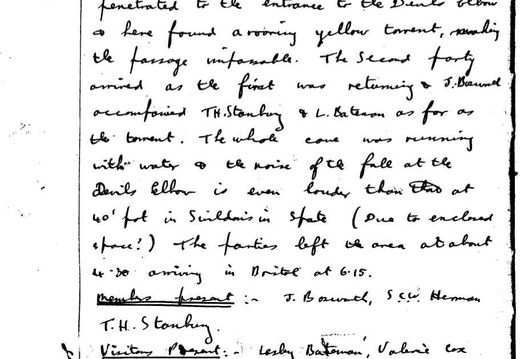 penetrated to the entrance to the Devils Elbow
& here found a roaring yellow torrent, making
the passage impassable. The Second party
arrived as the first was returning & J. Boswell
accompanied T.H. Stanbury & L. Bateman as far as
the torrent. The whole cave was running
with water & the noise of the fall at the
Devils Elbow is even louder than that at
40' pot in Swildons in Spate (Due to enclosed
space?) The parties left the area at about
4.30 arriving in Bristol at 6.15.
Members present:- J. Boswell, Herman
T.H. Stanbury.
Visitors Present:- Lesley Bateman, Valerie Cox